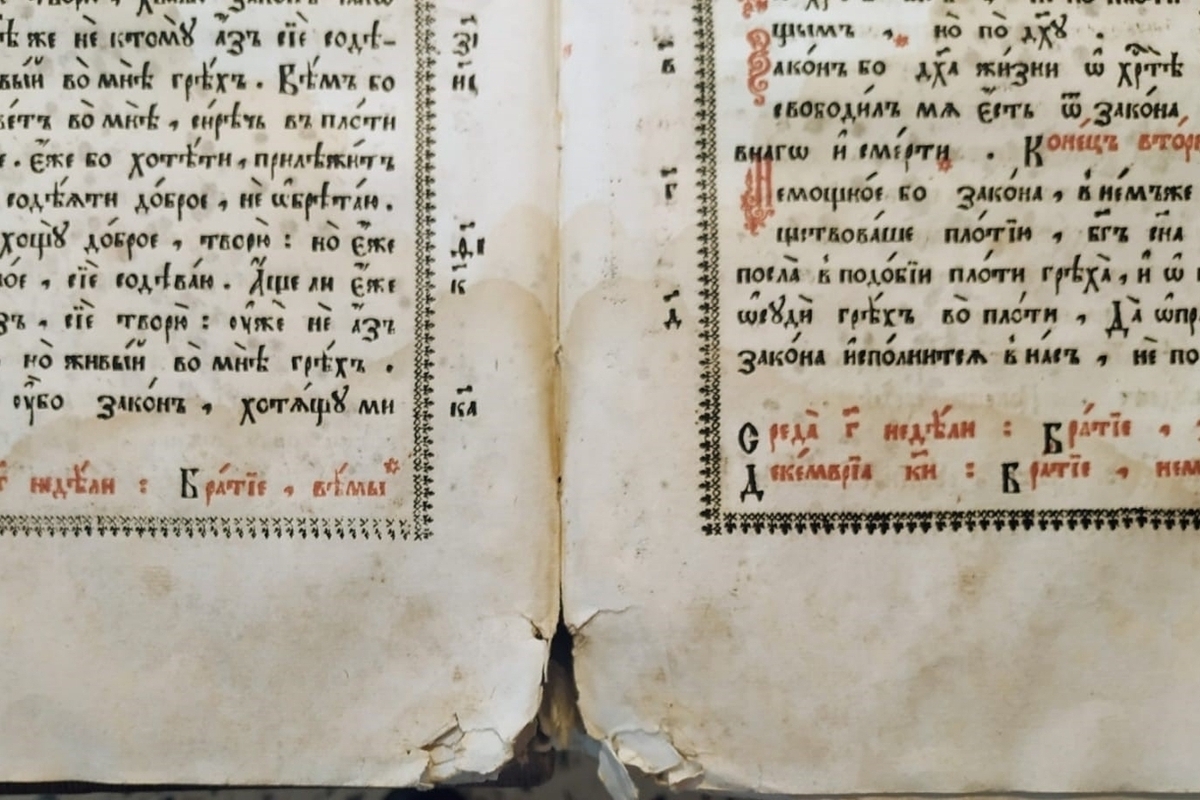 ѣ же не ктомꙋ̀ а҆́зъ сїѐ содѣ- з҃і
вы́й во̀ мнѣ̀ грѣ́хъ . Вѣ́мъ бо и҃і
ветъ во̀ мнѣ̀ , си́рѣчь въ пло́сти
е . Є҆́же бо хотѣ́ти , прилѣжи́тъ
содѣ́ѧти до́брое , не ѡ҆брѣта́ю .
хощꙋ̀ до́брое , творю̀ : но є҆́же ѳ҃і
ое , сїѐ содѣва́ю . А҆́ще ли є҆́же к҃
зъ , сїѐ творю̀ : ᲂу҆жѐ не а҆́зъ
но живы́й во̀ мнѣ̀ грѣ́хъ .
ᲂу҆̀бо зако́нъ , хотѧ́щꙋ ми к҃а
г҃ недѣ́ли : Бра́тїе , вѣ́мы
щымъ , но по дх҃ꙋ .
Зако́нъ бо дх҃а жи́зни ѡ҆ хрⷭ҇тѣ̀ в҃
свободи́лъ мѧ є҆́сть ѿ зако́на
внагѡ и҆ сме́рти . Коне́цъ вторн
Немощно́е бо зако́на , в не́мъже г҃
ществоваше пло́тїю , бг҃ъ сн҃а
посла̀ в подо́бїи пло́ти грѣха̀ , и҆ ѡ҆
ѡ҆сꙋдѝ грѣ́хъ во пло́сти , Да ѡ҆пр д҃
зако́на и҆спо́лнитсѧ в на́съ , не по
Среда̀ г҃ недѣ́ли : Бра́тїе ,
Деке́мврїа к҃и : Бра́тїе , нем